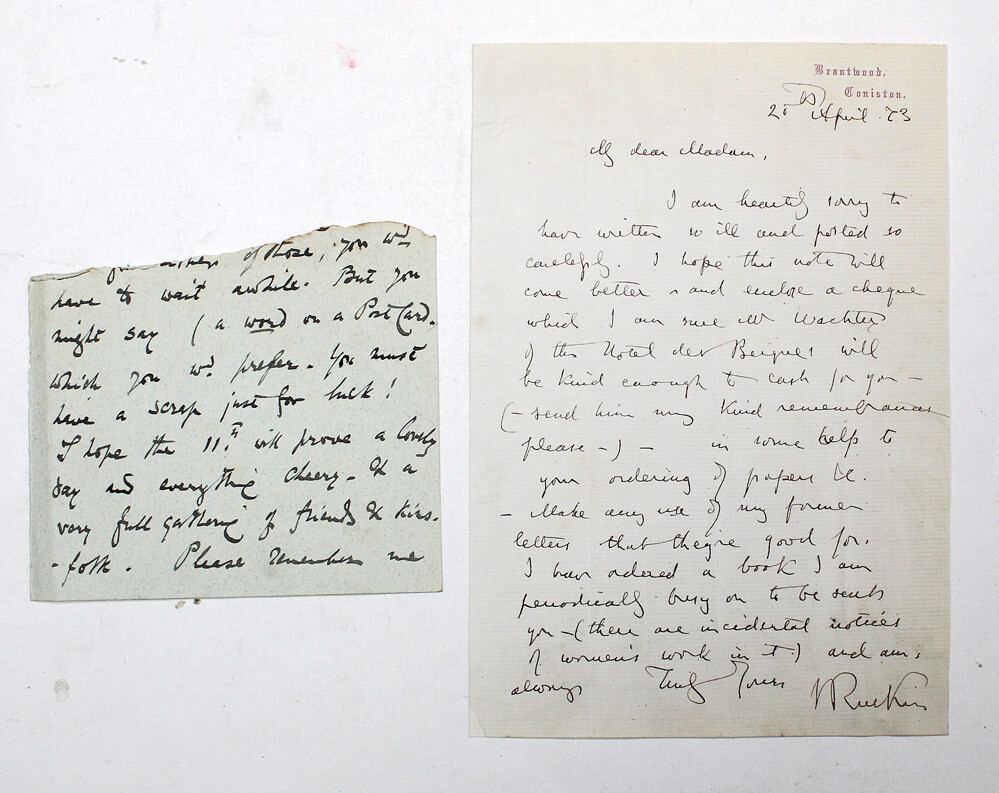 of those, you wd
have to wait awhile. But you
might say (a word on a Post Card.
which you wd prefer. You must
have a scrap just for luck!
I hope the 11th will prove a lovely
day and everything cheery. & a
very full gathering of friends & kins-
-folk. Please remember me
Brantwood,
Coniston.
April 73
My dear Madam,
I am heartily sorry to
have written so ill and posted so
carelessly. I hope this note will
come better - and enclose a cheque
which I am sure Mr Wachter
of the Hotel des Bergues will
be kind enough to cash for you -
(- send him my kind remembrances
please -) - in some help to
your ordering of papers &c.
- Make any use of my former
letters that they're good for.
I have ordered a book I am
periodically busy on to be sent
you - (there are incidental notices
of women's work in it.) and am,
always Truly Yours
J Ruskin